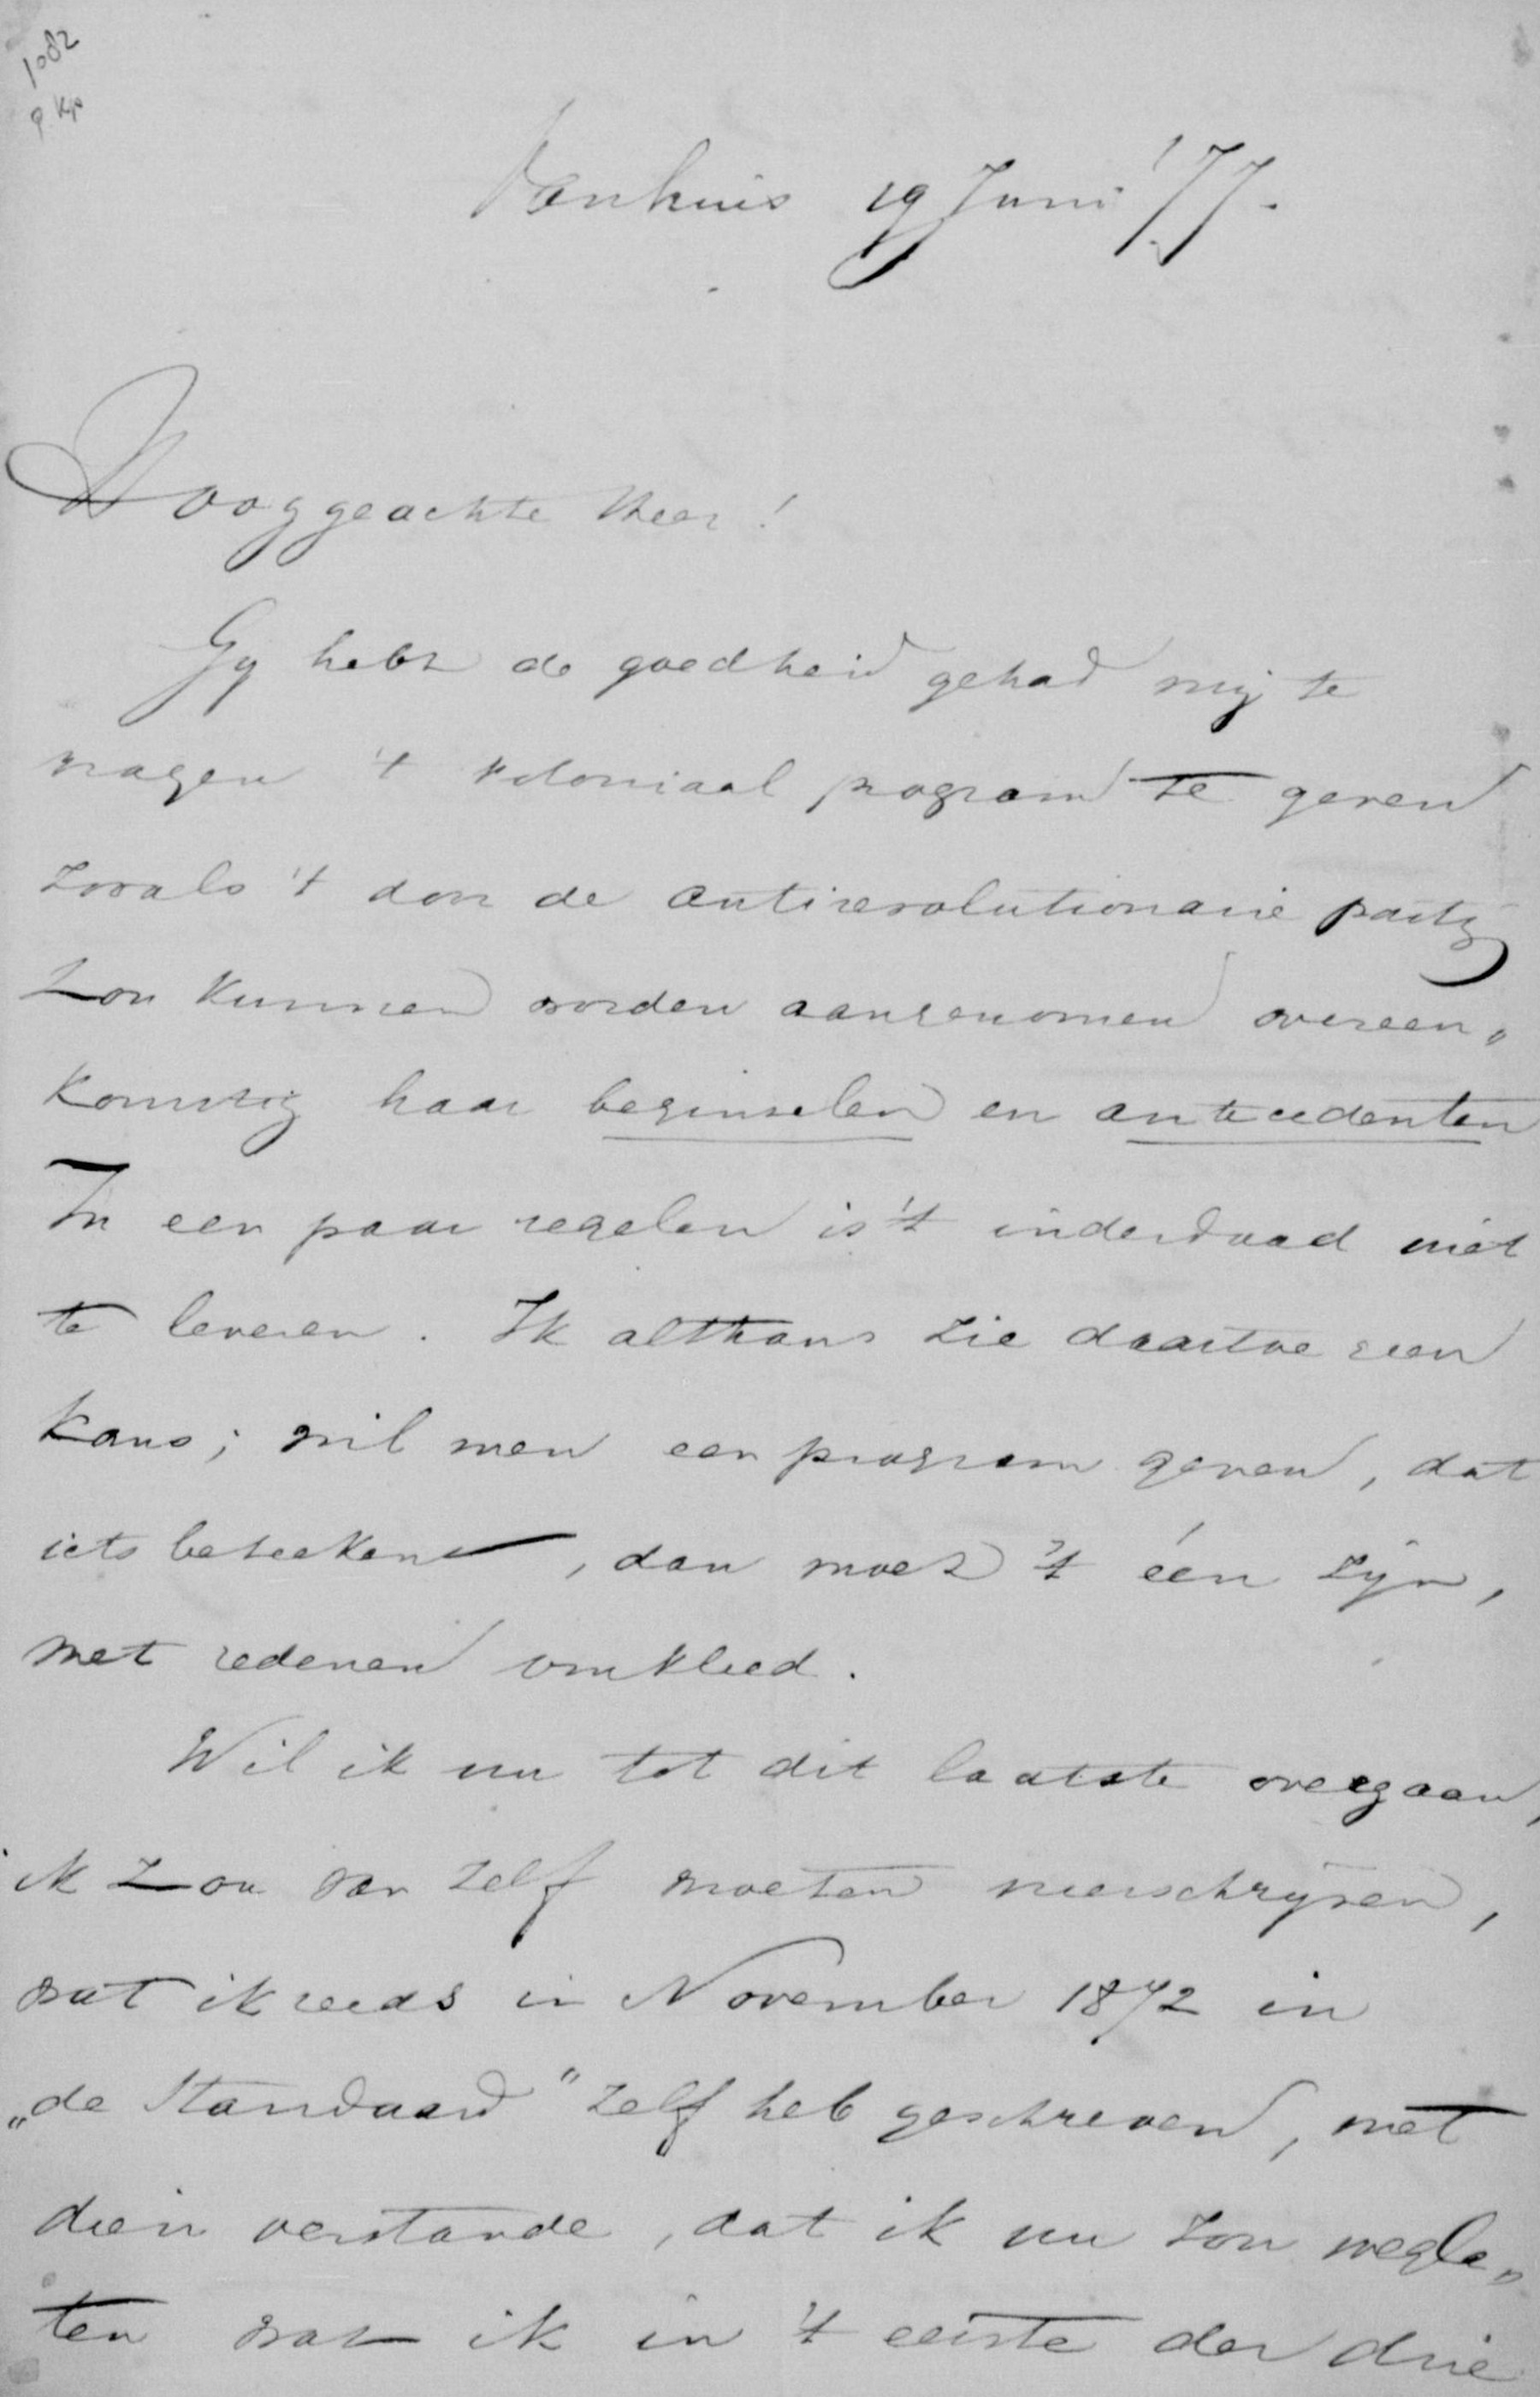 1082
P. Kp
Vanhuis 19 Juni '77.
Hooggeachte Heer!
Gy hebt de goedheid gehad mij te
vragen 't koloniaal program te geven
zooals 't door de antirevolutionaire partij
zou kunnen worden aangenomen overeen„
komstig haar beginselen en antecedenten
In een paar regelen is 't inderdaad niet
te leveren. Ik althans zie daartoe geen
kans; wil men een program geven, dat
iets beteekent, dan moet 't één zijn,
met redenen omkleed.
Wil ik nu tot dit laatste overgaan,
ik zou van zelf moeten neerschrijven,
wat ik reeds in November 1872 in
„de Standaard" zelf heb geschreven, met
dien verstande, dat ik nu zou wegla„
ten wat ik in 't eerste der drie